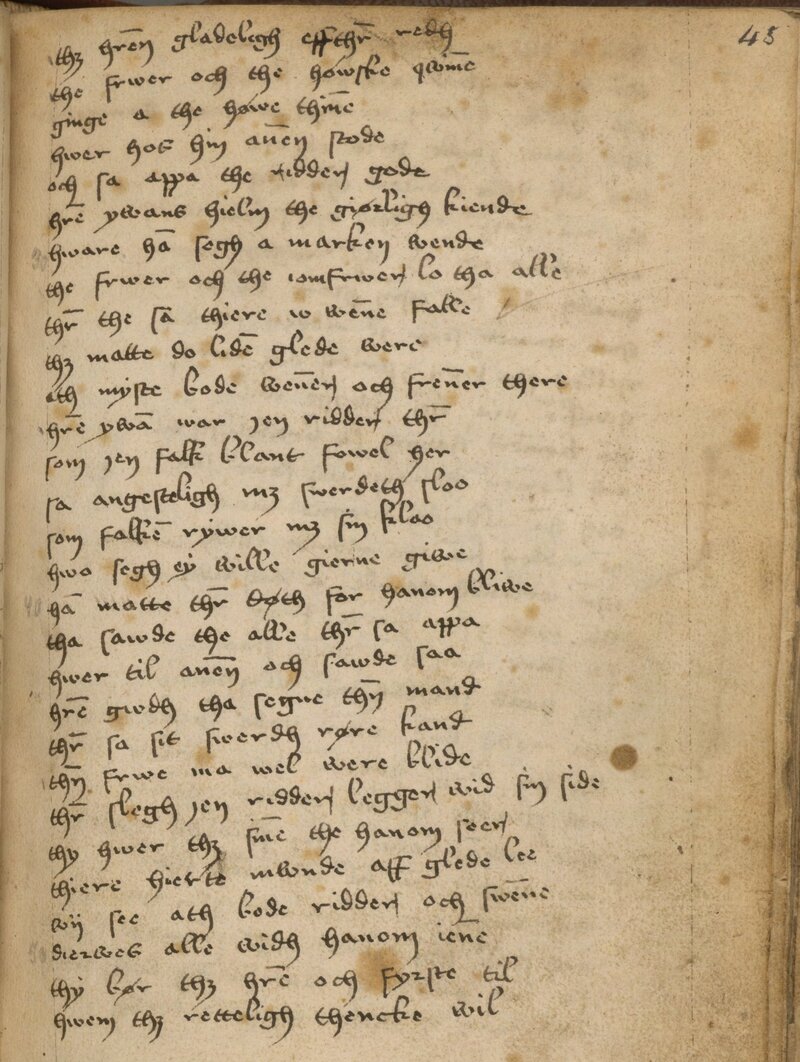 48
thz hrēn gladeligh effthr̄ redh
the frwer och the høwske qwinē
ginge a the høwe thinē
hwer hos hin anēn stode
och sa appa the ridderj gode
hrē ywans hielm the giørligh kiende
hware hā segh a marken wende
the frwer och the iomfrwerj lo tha alle
thr̄ the sā thiere wwēne falle
thz matte do lidē glede were
ath myste bode wenērj och frenēr there
hrē ywā war jen ridderj thr̄
som jen falk blant fowel her
sa angesteligh mz swerdeth sloo
som falkē rywer mz sin kloo
hwo segh ey wille gierne giwe
hā matte thr̄ døth for hanom bliwe
tha sawde the alle thr̄ sa appa
hwer til anēn och sawde saa
hrē gwdh tha segne thn̄ mand
thr̄ sa sit swerdh røre kand
thn̄ frwe ma wel were blide
thr̄ slegh jen ridderj leggerj wid sin side
thy hwer thz sinē the hanom seerj
thiere hierte mwnde aff glede lee
wij see ath bode ridderj och swēne
dierwes alle widh hanom iēne
thy bør thz hrē och fyrste til
hwem thz retteligh thencke wil